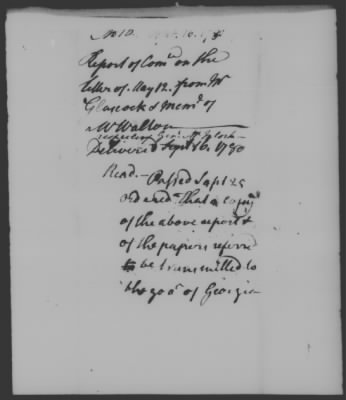 No 10
Report of Com.e on the
letter of May 12. from Mr
Glascock & Meml. of
Mr Walton
respecting Genl. McIntosh
Delivered Sept 16. 1780
Read. – Passed Sept 25
ordered That a copy
of the above report &
of the papers referred
to be transmitted to
the govr. of Georgia